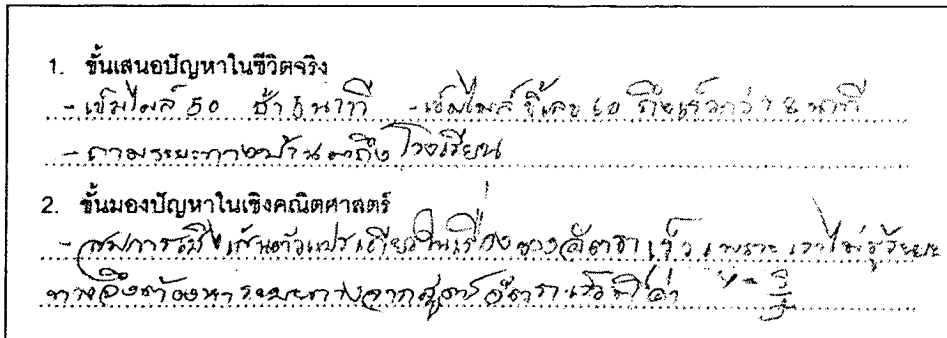 1. ขั้นเสนอปัญหาในชีวิตจริง
- เข็มไมล์ 50 ช้า 5 นาที - เข็มไมล์ชี้เลข 60 ถึงเร็วกว่า 8 นาที
- ถามระยะทางบ้านถึงโรงเรียน
2. ขั้นมองปัญหาในเชิงคณิตศาสตร์
- สมการเชิงเส้นตัวแปรเดียวในเรื่องของอัตราเร็ว เพราะเราไม่รู้ระยะ
ทางจึงต้องหาระยะทางจากสูตรอัตราเร็ว